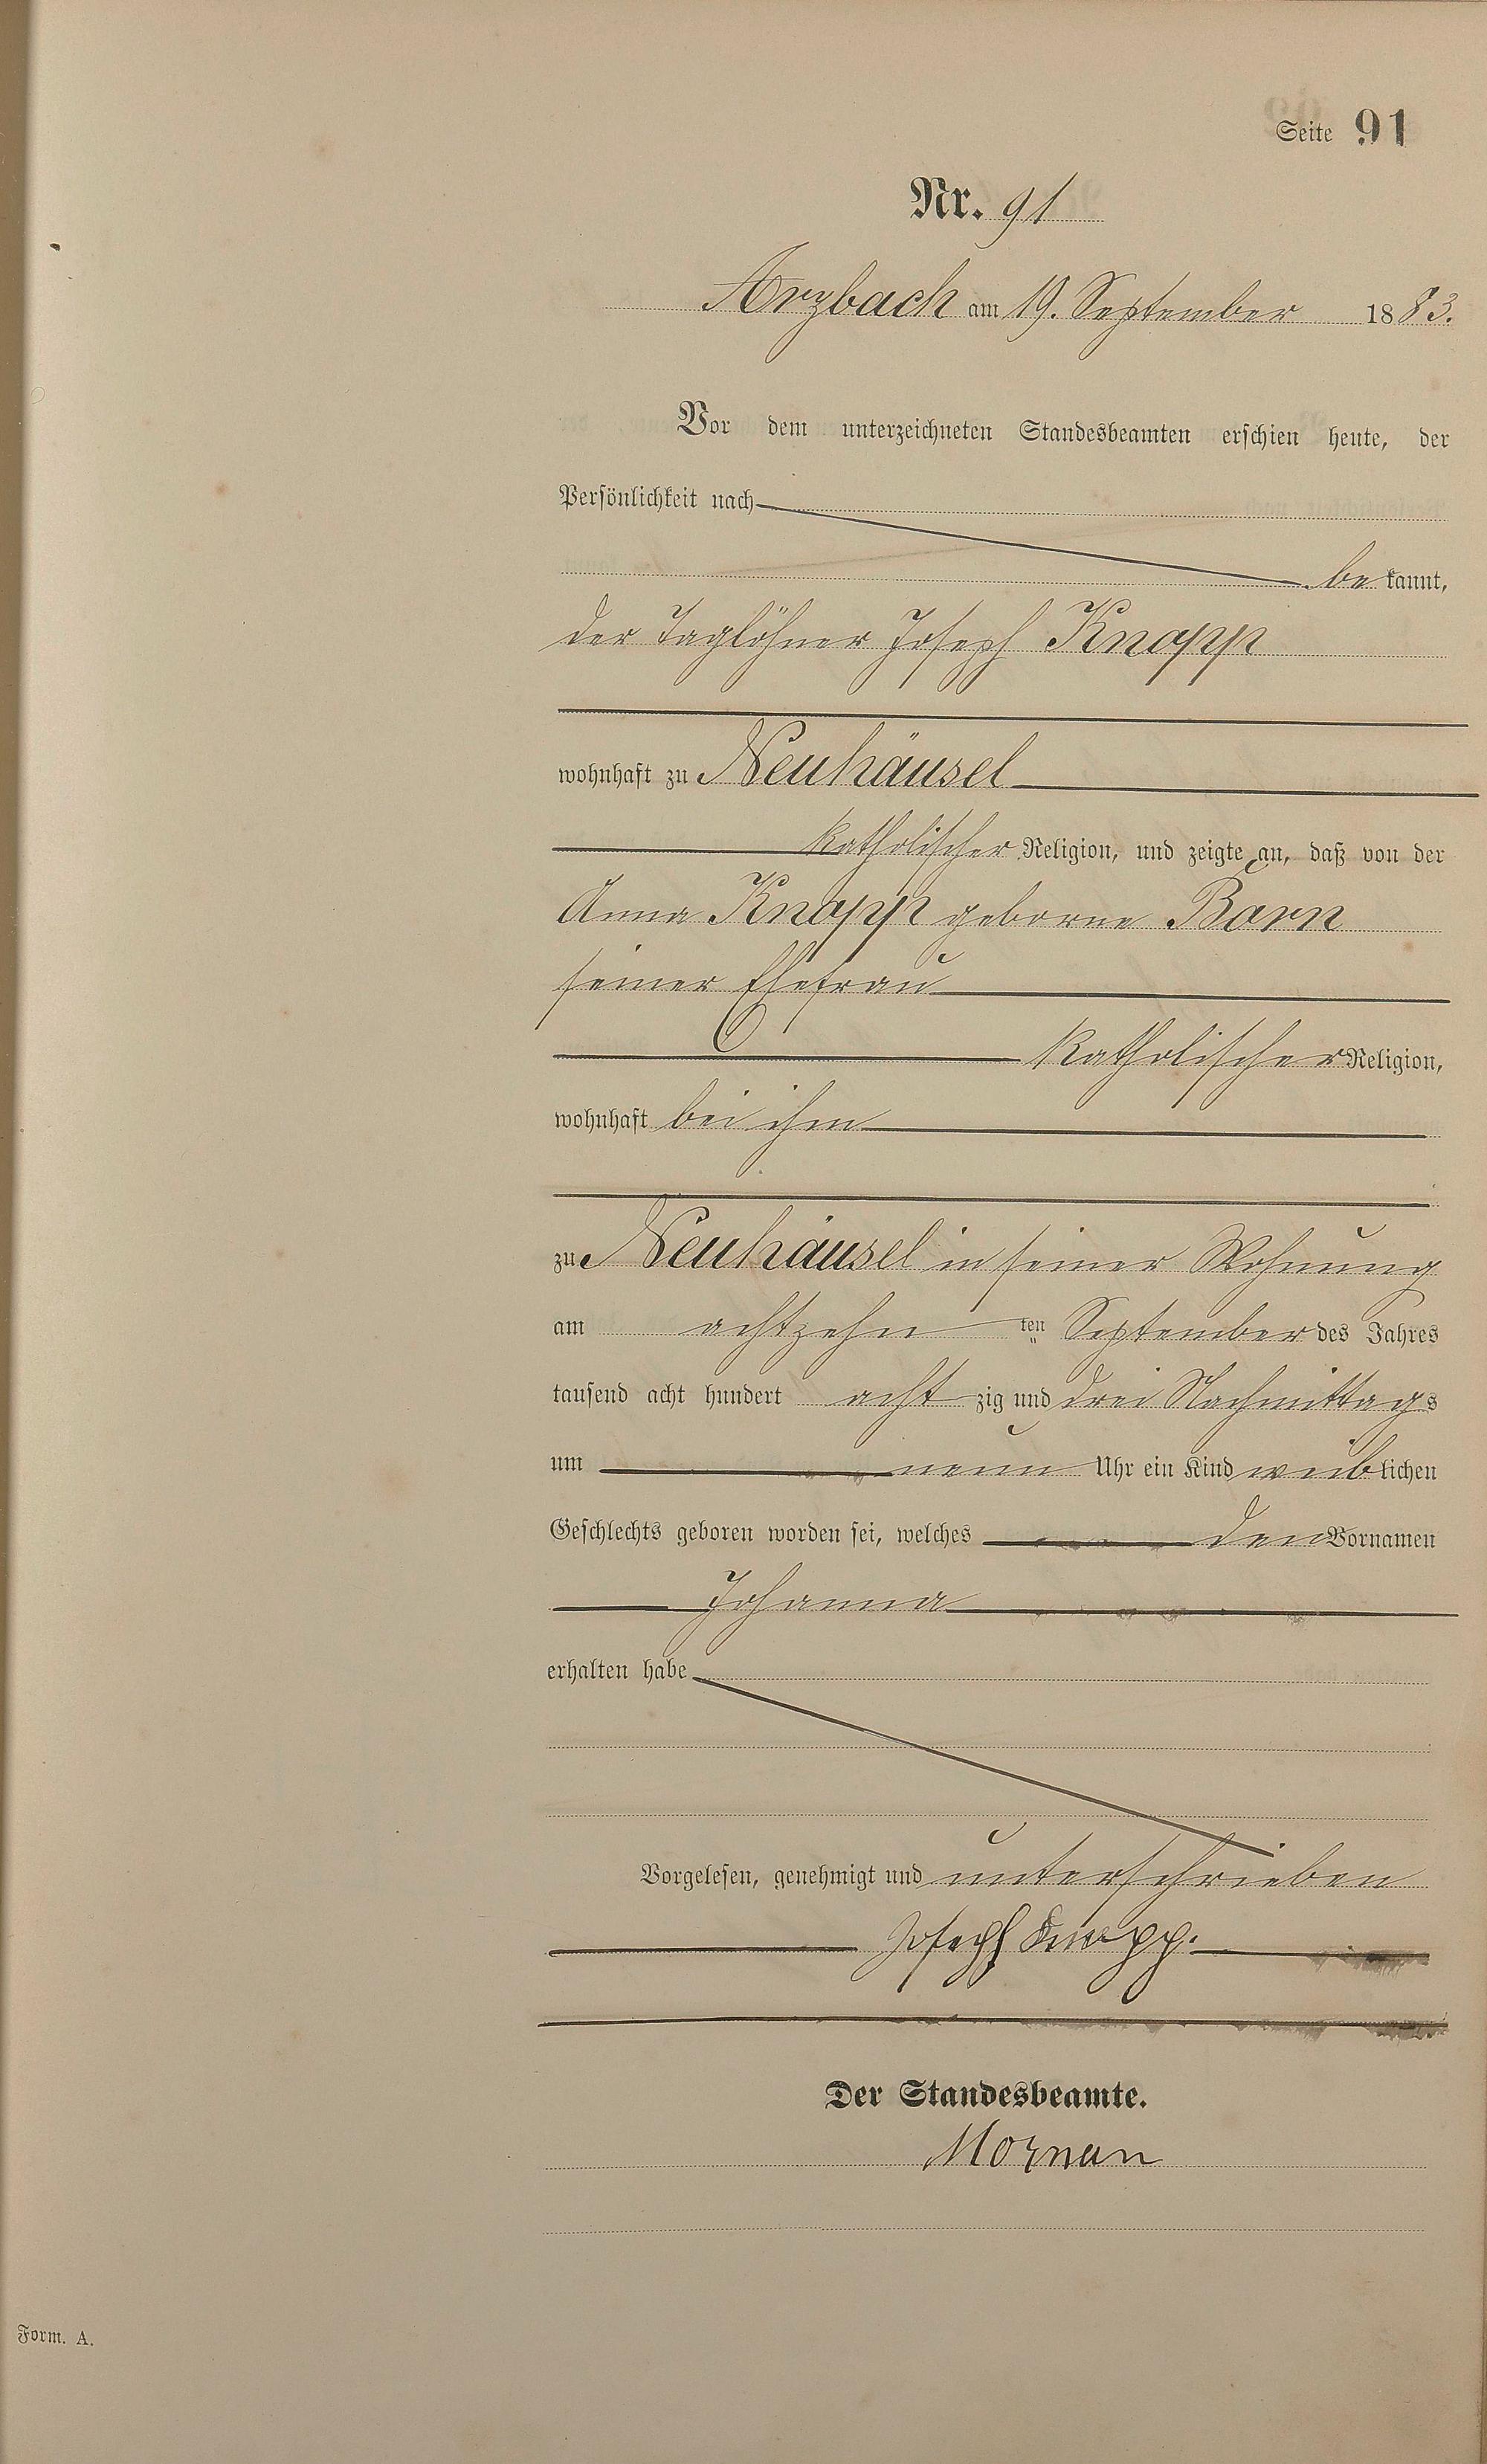 Seite 91
Nr. 91
Arzbach am 19. September 1883.
Vor dem unterzeichneten Standesbeamten erschien heute, der
Persönlichkeit nach
bekannt,
der Taglöhner Joseph Knopp
wohnhaft zu Neuhäusel
katholischer Religion, und zeigte an, daß von der
Anna Knopp geborne
seiner Ehefrau
katholischer Religion,
wohnhaft bei ihm
zu Neuhäusel in seiner Wohnung
am achtzehn ten September des Jahres
tausend acht hundert acht zig und drei Nachmittags
um neun Uhr ein Kind weiblichen
Geschlechts geboren worden sei, welches den Vornamen
Johanna
erhalten habe
Vorgelesen, genehmigt und unterschrieben
Joseph Knopp.
Der Standesbeamte.
Form. A.